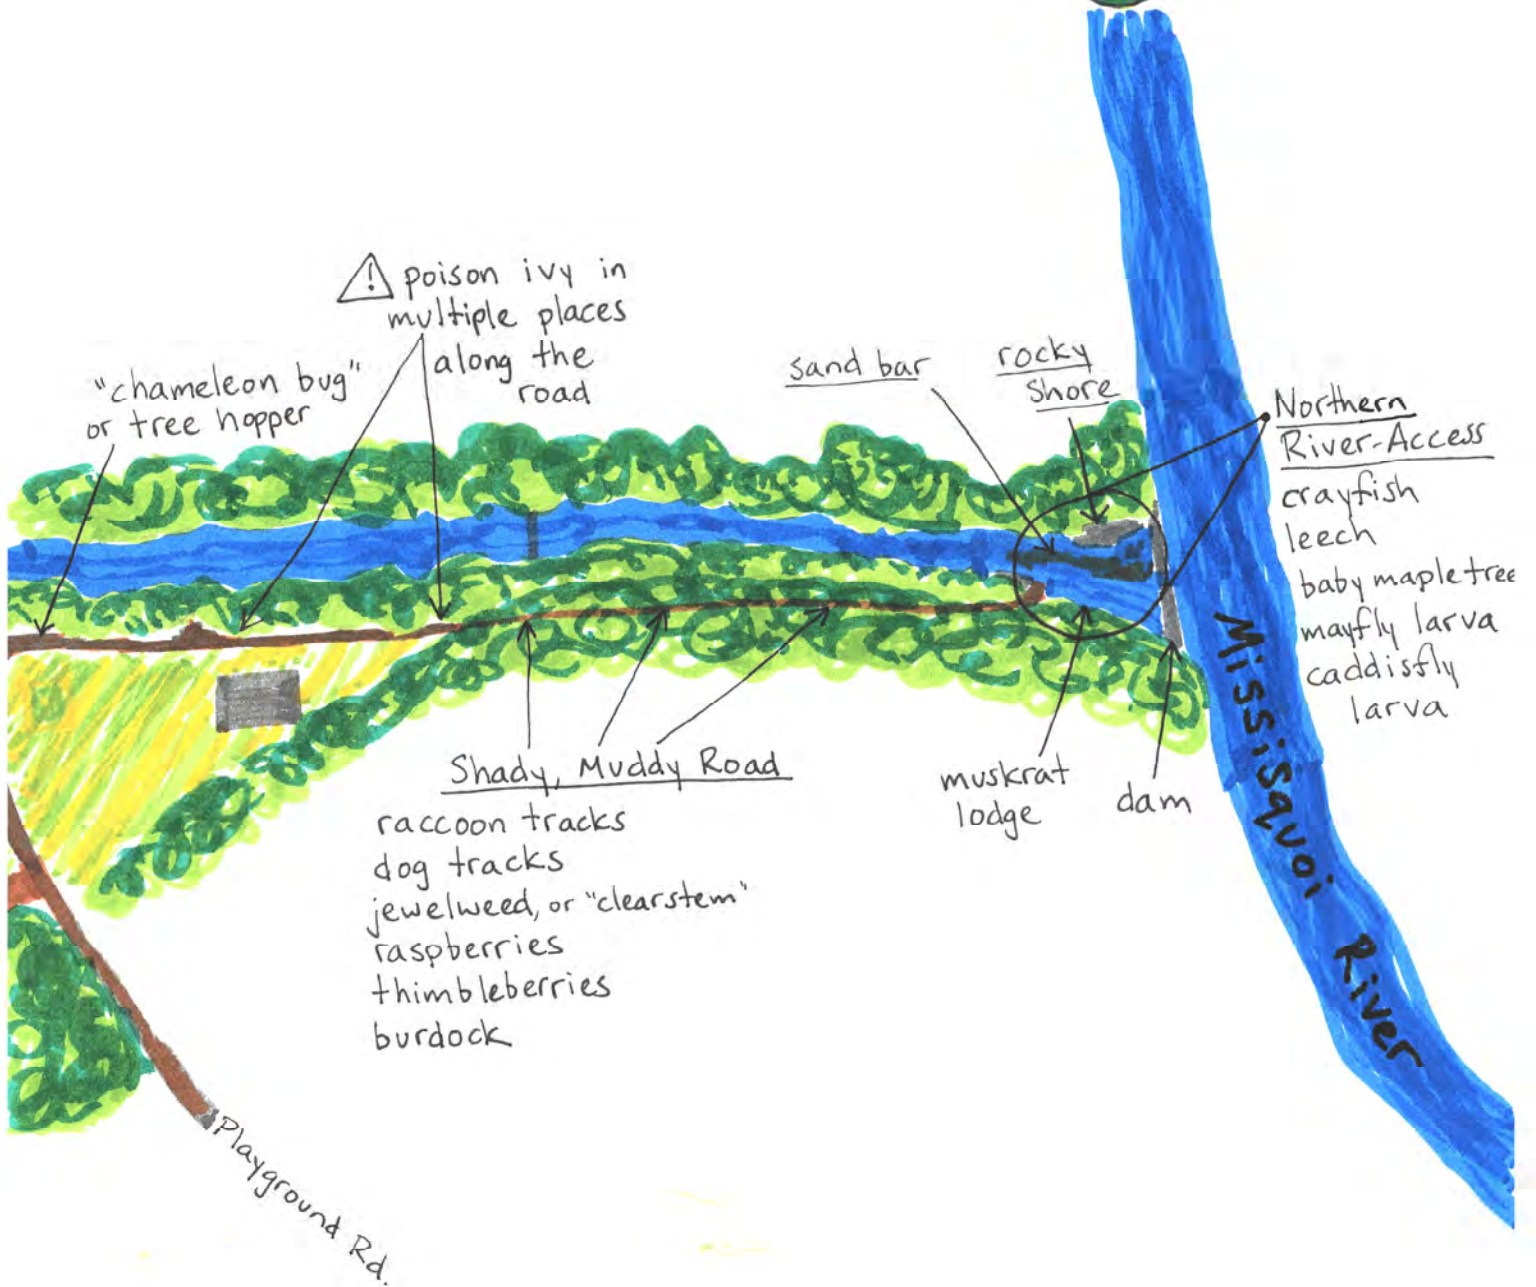 ⚠ poison ivy in
multiple places
along the
road
"chameleon bug"
or tree hopper
sand bar
rocky
shore
Northern
River-Access
crayfish
leech
baby maple tree
mayfly larva
caddisfly
larva
Shady, Muddy Road
raccoon tracks
dog tracks
jewelweed, or "clearstem"
raspberries
thimbleberries
burdock
muskrat
lodge
dam
Missisquoi River
Playground Rd.